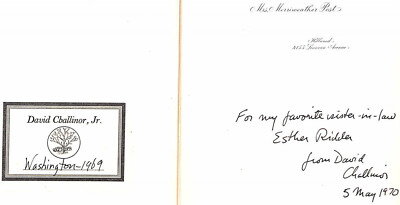 David Challinor, Jr.
Washington - 1969
Mrs. Merriweather Post
Hillwood
For my favorite sister-in-law
Esther Ridder
from David
Challinor
5 May 1970